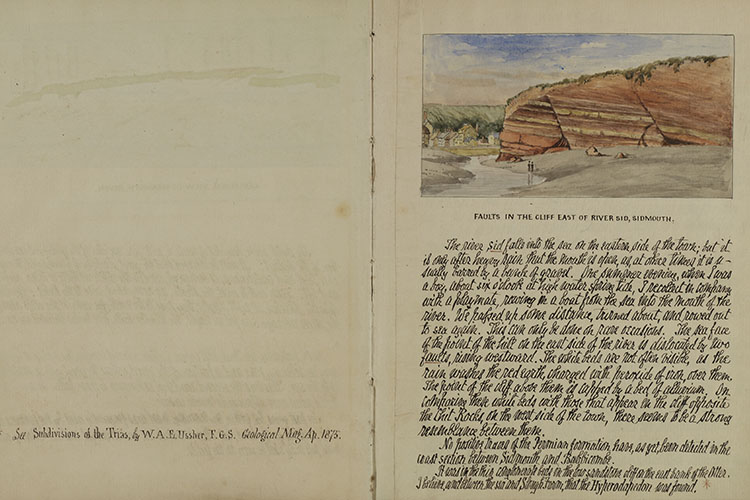 See Subdivisions of the Trias, by W. A. E. Ussher, F. G. S. Geological Mag. Ap. 1875.
FAULTS IN THE CLIFF EAST OF RIVER SID, SIDMOUTH.
The river Sid falls into the sea on the eastern side of the town; but it
is only after heavy rain that the mouth is open, as at other times it is u-
sually barred by a bank of gravel. One summer evening, when I was
a boy, about six o'clock at high water spring tide, I recollect in company
with a playmate, rowing in a boat from the sea into the mouth of the
river. We passed up some distance, turned about, and rowed out
to sea again. This can only be done on rare occasions. The sea face
of the point of the hill on the east side of the river is dislocated by two
faults, rising westward. The white beds are not often visible, as the
rain washes the red earth, charged with peroxide of iron, over them.
The point of the cliff above them is capped by a bed of alluvium. On
comparing these white beds with those that appear in the cliff opposite
the Chit Rocks, on the west side of the town, there seems to be a strong
resemblance between them.
No positive traces of the Permian formation, have, as yet, been detected in the
coast section between Sidmouth and
It was in the thin conglomerate beds in the low sandstone cliff on the east bank of the Otter,
I believe, and between the sea and farm, that the Hyperodapedon was found.